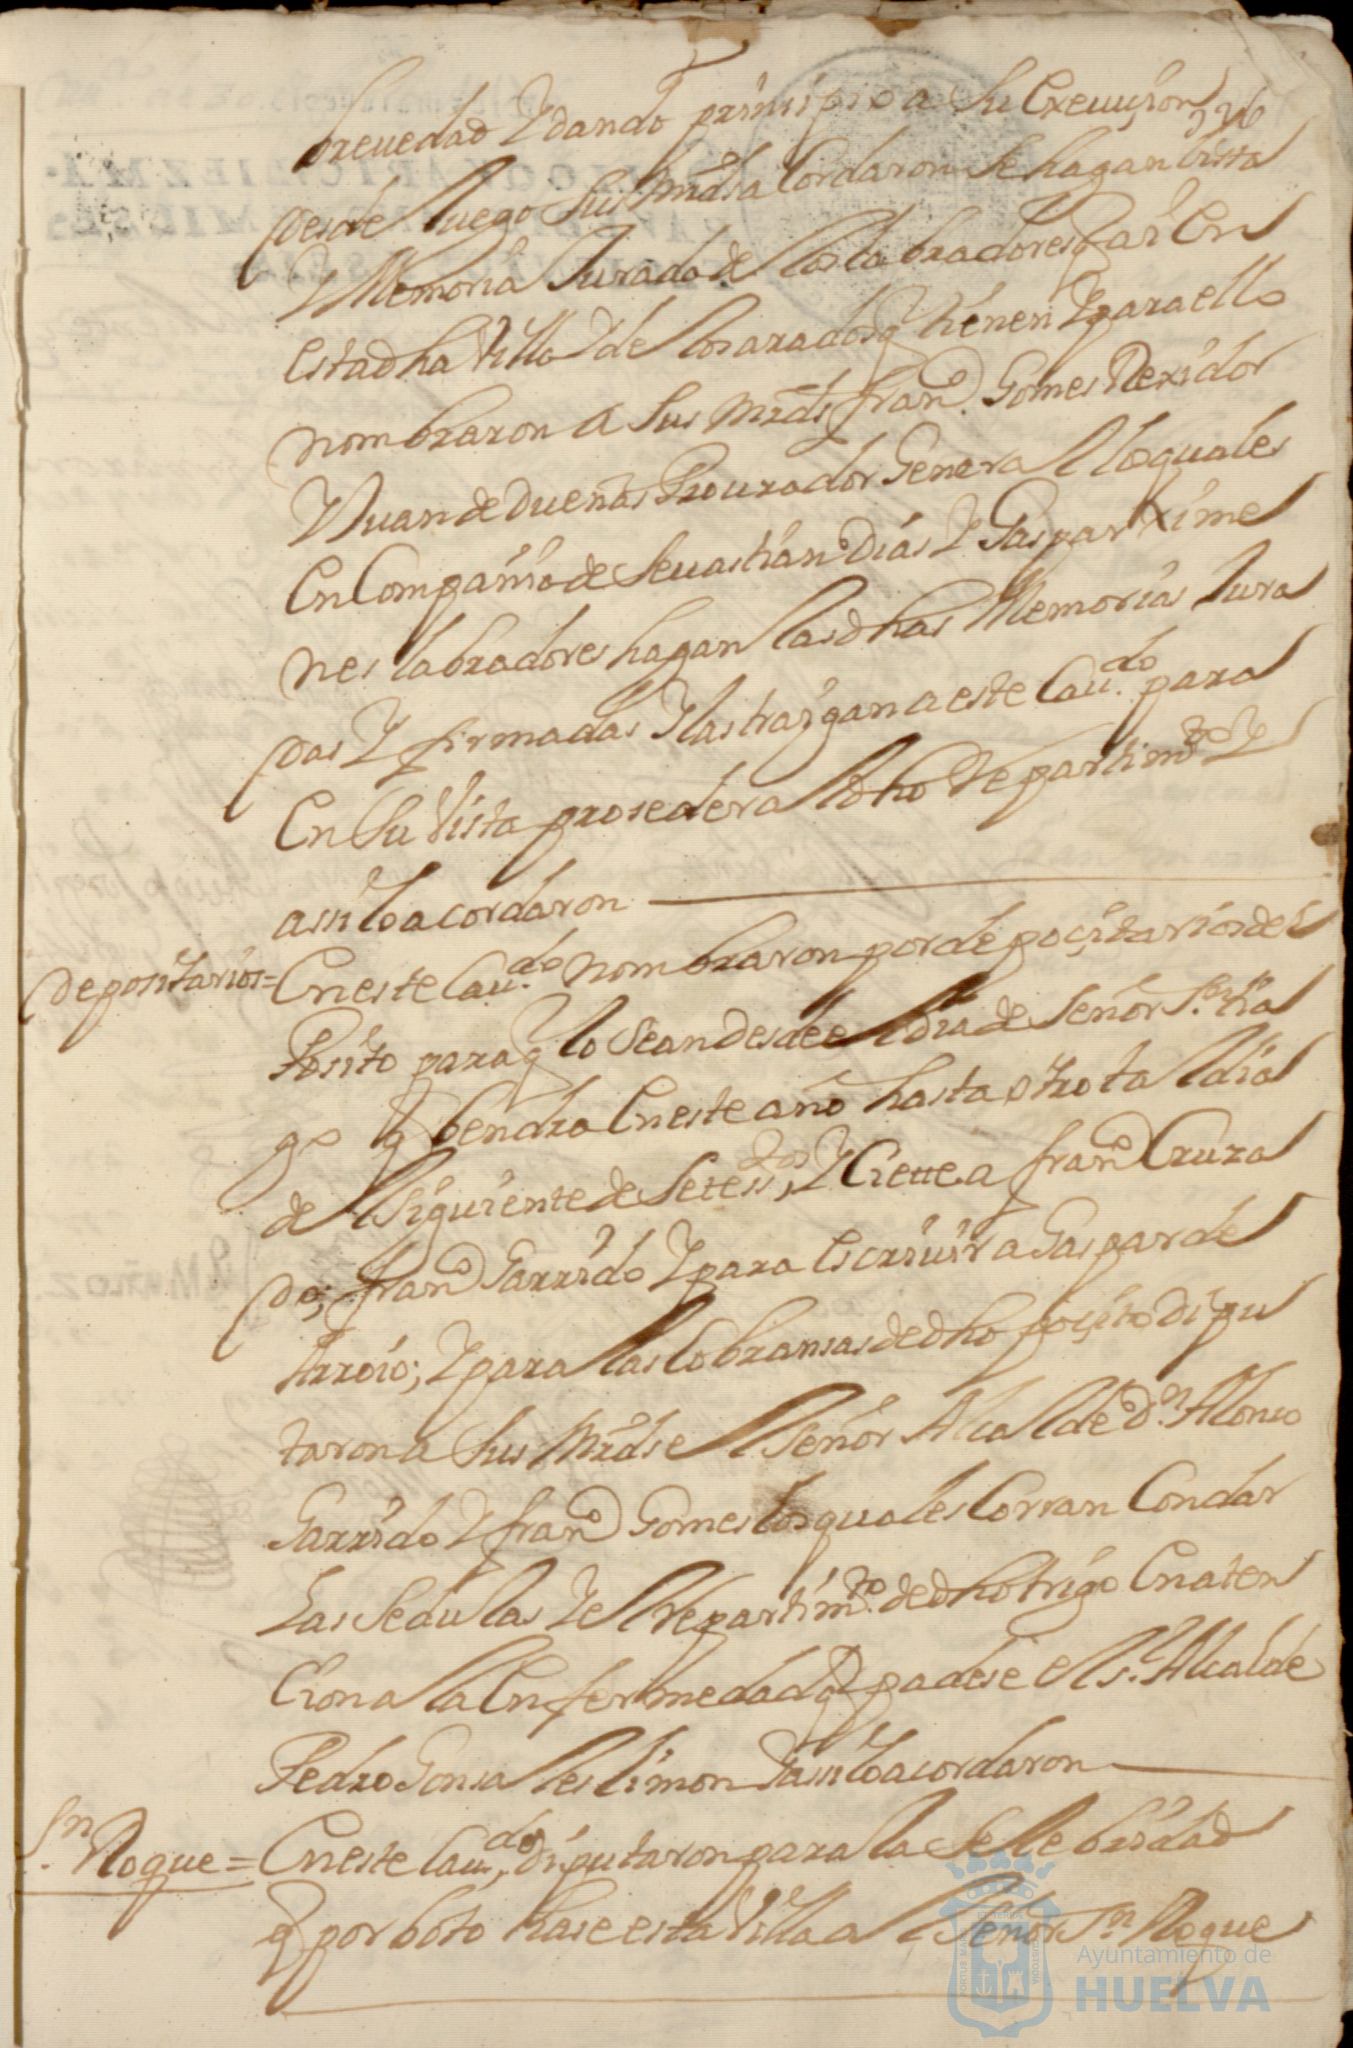 brevedad Y dando prinsipio a su Execusion
desde luego sus mrds acordaron se hagan lista
Y Memoria Jurada de los labradores q ai En
esta dha Villa Y de los arados q tienen Y para ello
nombraron a sus mrds franco Gomes Rexidor
Y Juan de Dueñas Procurador General los quales
En Compañia de Sevastian Dias Y Gaspar Xime
nes labradores hagan las dhas Memorias Jura
das Y firmadas Y las traigan a este Caudo para
En su Vista proseder al dho Repartimto Y
assi lo acordaron
Depositarios = En este Caudo nombraron por depoçitarios del
Posito para q lo sean desde el dia de Señor Santia
go q bendra En este año hasta otro tal dia
del siguiente de Setessos Y Ciette a franco Cruza
do; franco Garrido Y para Escriuir a Gaspar de
Arroio; Y para las Cobransas de dho poçito dipu
taron a sus mrds el Señor Alcalde Dn Alonso
Garrido Y franco Gomes los quales Corran Con dar
Las Sedulas Y el Repartimto de dho trigo En aten
Cion a la Enfermedad q padese el sr Alcalde
Pedro Gonsales limon Y assi lo acordaron
Sn Roque = En este Caudo diputaron para la Selebridad
q por boto hase esta Villa al Señor Sn Roque
Ayuntamiento de
HUELVA